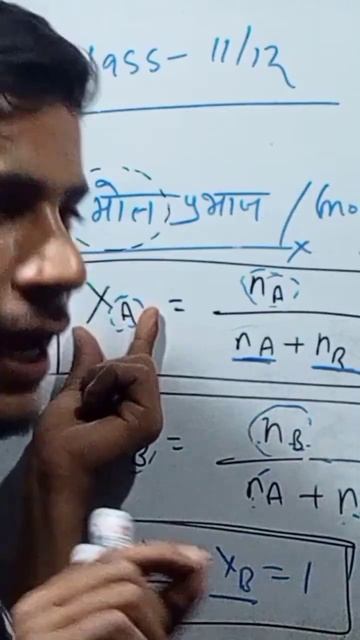 lass - 11/12
मोल प्रभाज / (mo
X_A = n_A / n_A + n_B
B = n_B / n_A + n
X_B = 1